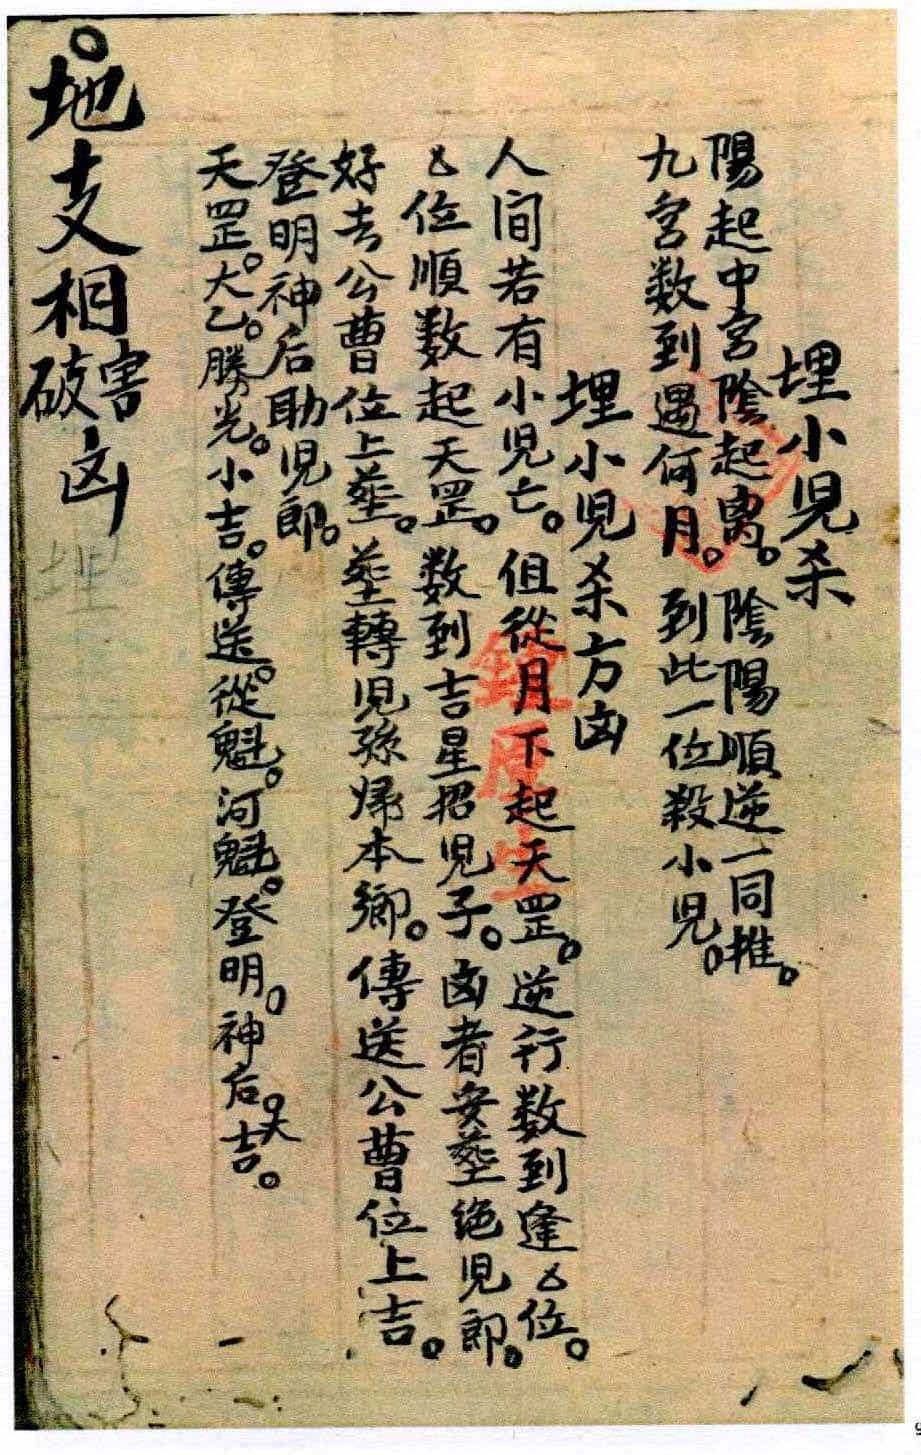 埋小児杀
陽起中宮陰起离。陰陽順逆一同推。
九宮数到遇何月。到此一位殺小児。
埋小児杀方凶
人间若有小児亡。但從月下起天罡。逆行数到逢亾位。
亾位順数起天罡。数到吉星招児子。凶者安塟绝児郎。
好去公曹位上塟。塟轉児孫归本鄉。傳送公曹位上吉。
登明神后助児郎。
天罡。太乙。勝光。小吉。傳送。從魁。河魁。登明。神后。大吉。
地支相破害凶
鐘